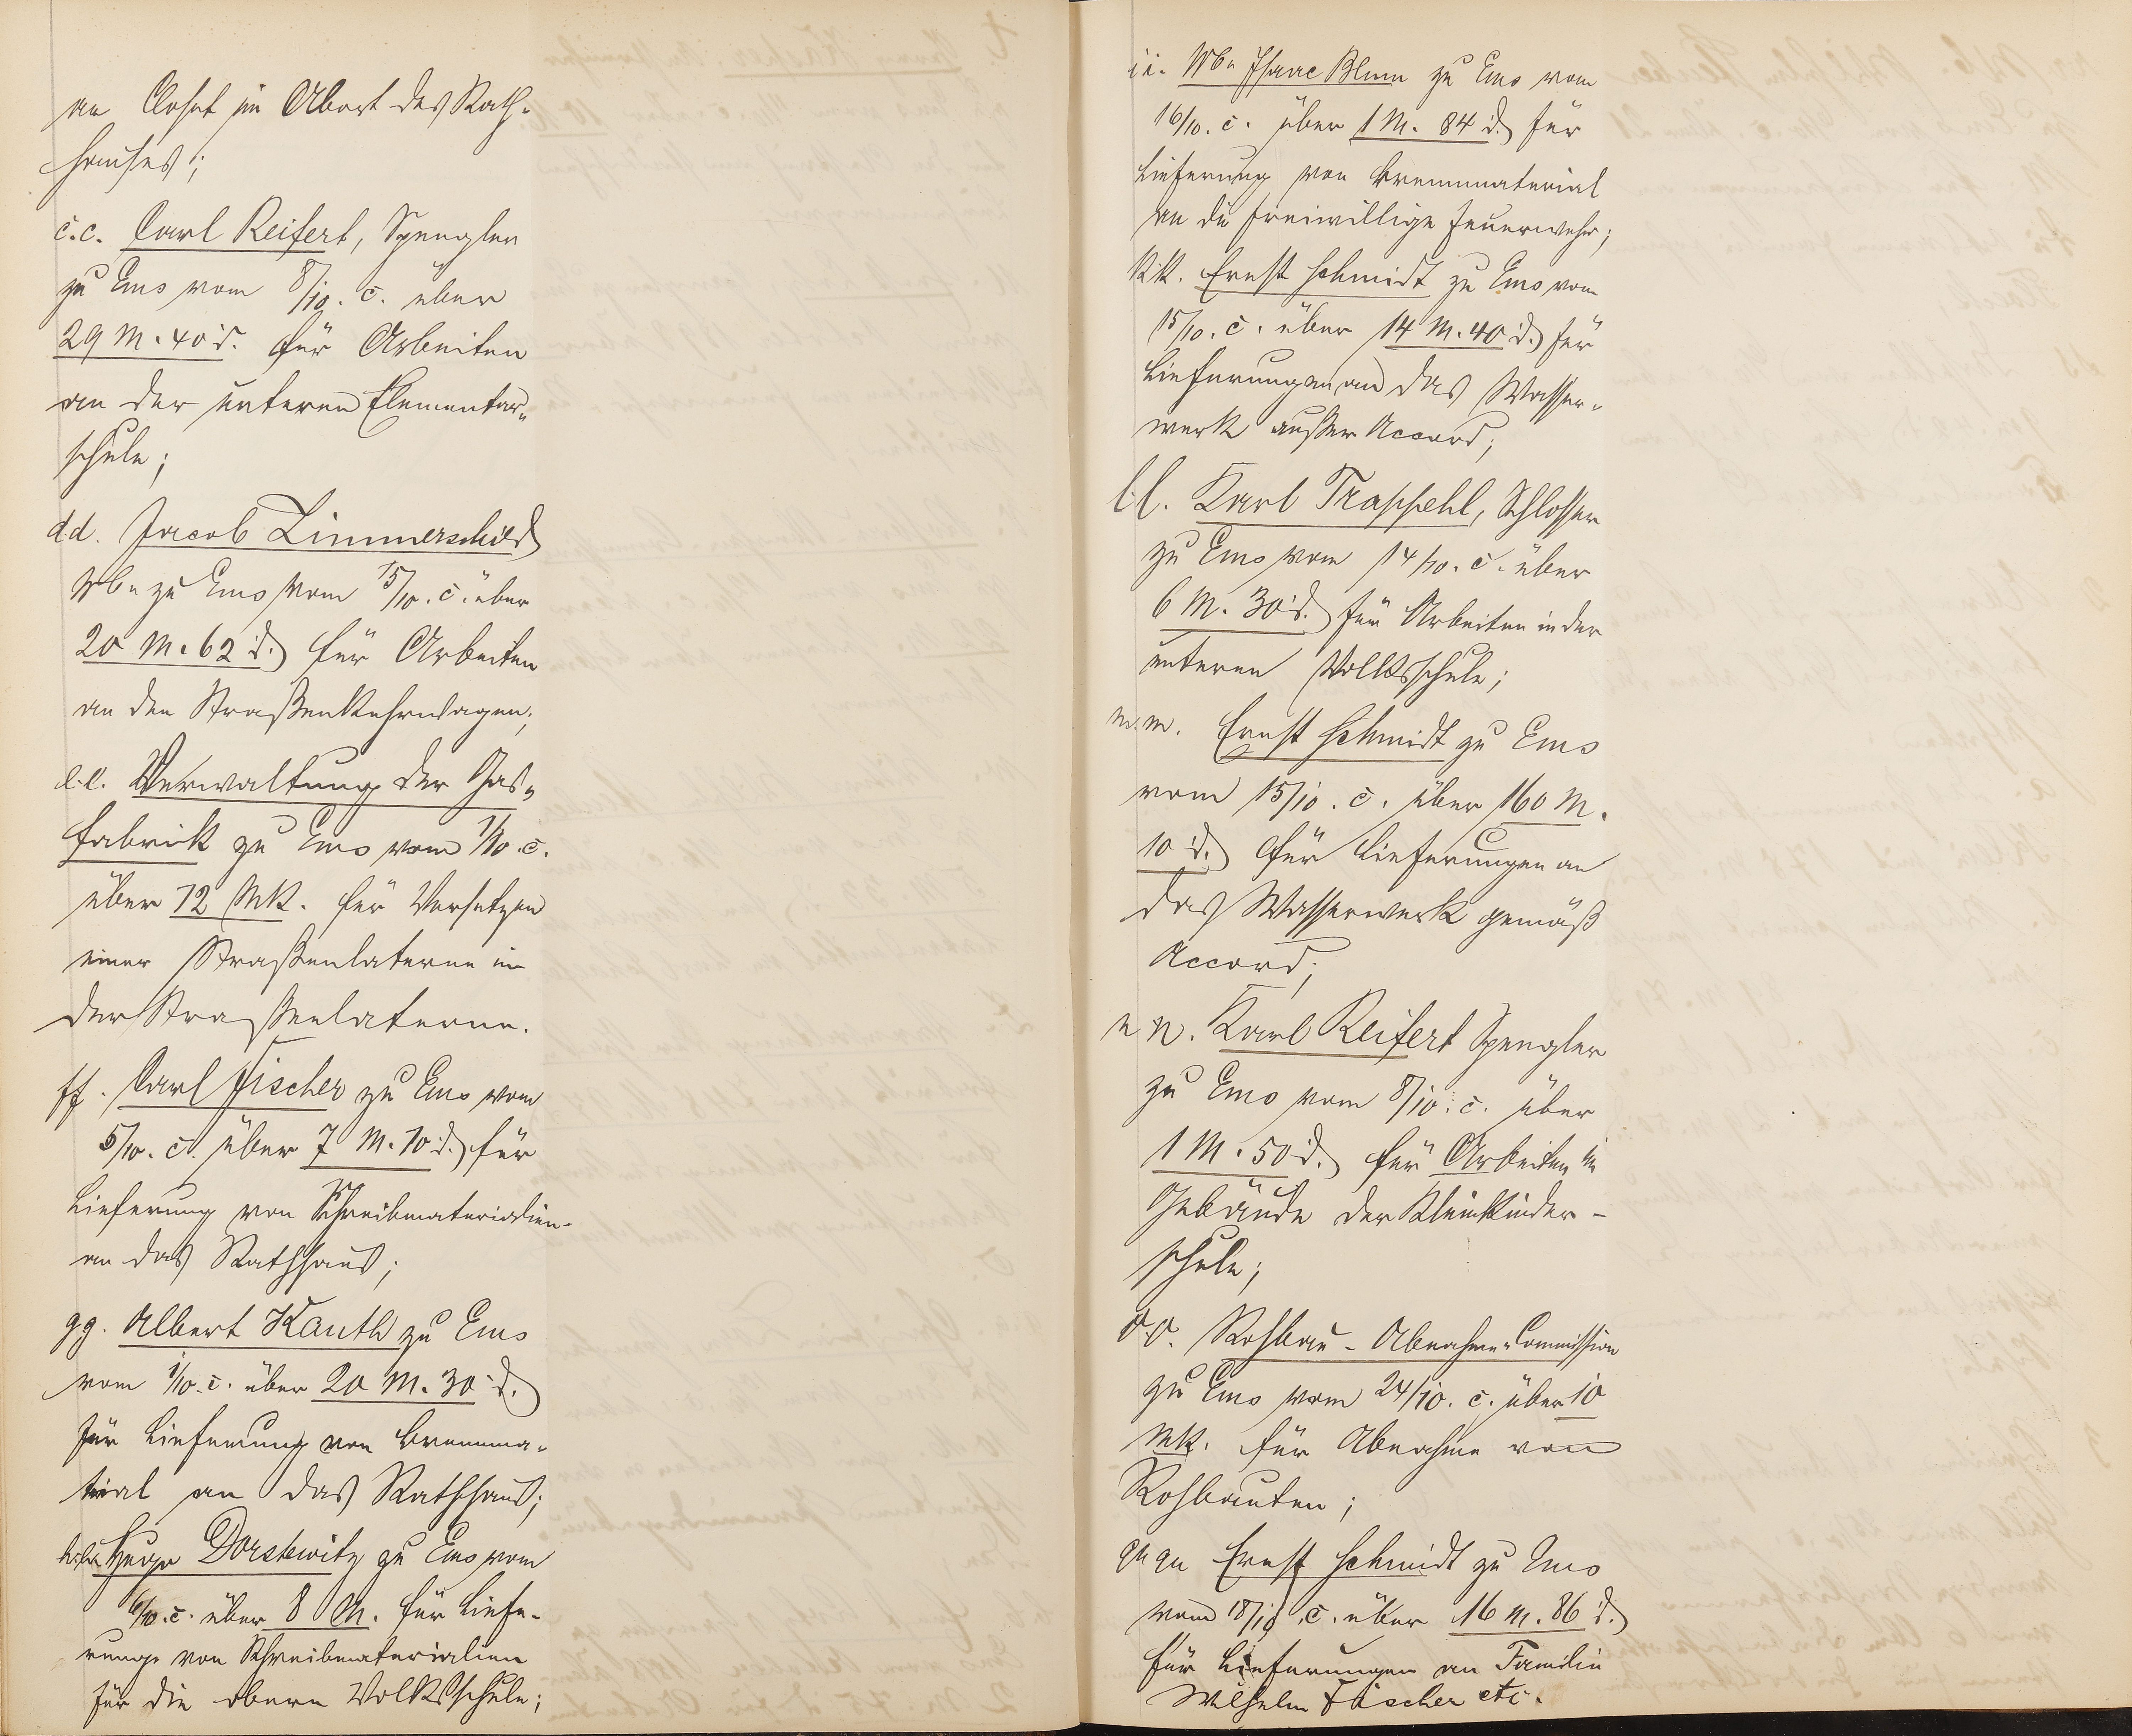 an Closet im Abort des Rath-
hauses;
c.c. Carl Reifert, Spengler
zu Ems vom 8/10. c. über
29 M. 40 d. für Arbeiten
an der unteren Elementar-
schule;
dd. Jacob Linnerschied
Wb. zu Ems vom 15/10. c. über
20 M. 62 d. für Arbeiten
an den Straßenkehrwagen;
e.e. Verwaltung der Gas-
fabrik zu Ems vom 7/10. c.
über 72 Mk. für Versetzen
einer Straßenlaterne in
der Straßenlaterne.
ff. Carl Fischer zu Ems vom
5/10. c. über 7 M. 70 d. für
Lieferung von Schreibmaterialien
an das Rathhaus;
gg. Albert Kauth zu Ems
vom 1/10. c. über 20 M. 30 d.
für Lieferung von Brennma-
terial an das Rathhaus;
hh. Hugo Dorstewitz zu Ems vom
6/10. c. über 8 M. für Liefe-
rung von Schreibmaterialien
für die obere Volksschule;
ii. Wb. Isaac Blum zu Ems vom
16/10. c. über 1 M. 84 d. für
Lieferung von Brennmaterial
an die freiwillige Feuerwehr;
kk. Ernst Schmidt zu Ems vom
15/10. c. über 14 M. 40 d. für
Lieferungen an das Wasser-
werk außer Accord;
ll. Karl Trappehl, Schlosser
zu Ems vom 14/10. c. über
6 M. 30 d. für Arbeiten in der
unteren Volksschule;
m.m. Ernst Schmidt zu Ems
vom 15/10. c. über 160 M.
10 d. für Lieferungen an
das Wasserwerk gemäß
Accord;
nn. Karl Reifert Spengler
zu Ems vom 8/10. c. über
1 M. 50 d. für Arbeiten im
Gebäude der Kleinkinder-
schule;
oo. Rohbau-Abnahme-Commission
zu Ems vom 24/10. c. über 10
Mk. für Abnahme von
Rohbauten;
Ernst Schmidt zu Ems
vom 18/10. c. über 16 M. 86 d.
für Lieferungen an Familie
Wilhelm Fischer etc.